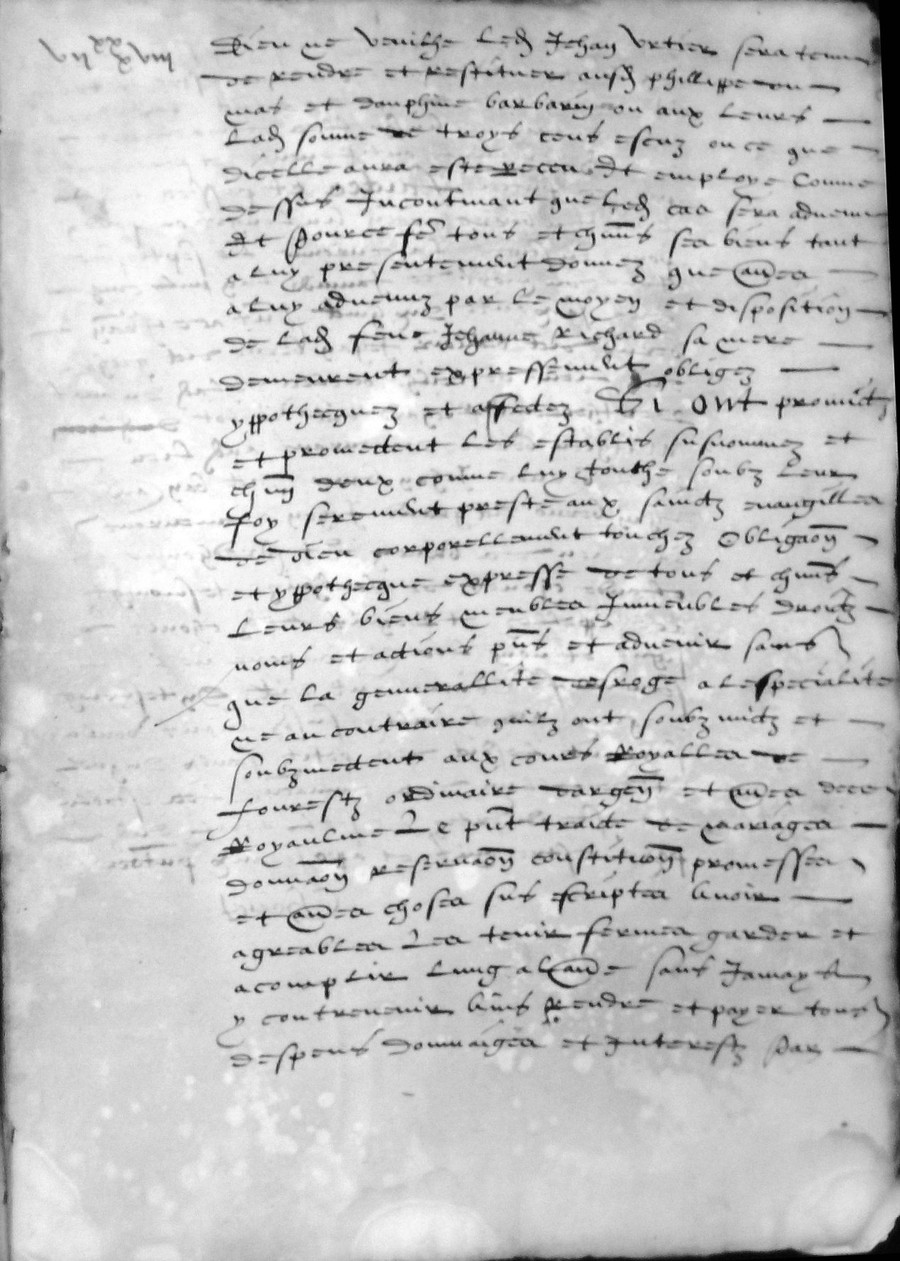 vii xx xviii
Dieu ne veuilhe led Jehan Vrtier sera tenu
de rendre et restituer ausd phillippe
mas et dauphine barbarin ou aux leurs
lad somme de troys cens escuz ou ce que
dicelle aura este receu Et employe comme
dessus Incontinant que led cas sera advenu
Et pource fe tous et chuns ses biens tant
a luy presentement donnez que aues
a luy advenuz par le moyen et disposition
de lad feue Jehanne Richard sa mere
demeurent expressement obligez
yppothecquez et affectez Et Ont promictz
et promectent les establis susnommez et
chun deux comme luy touche soubz leur
foy serement preste aux sainctz evangilles
de dieu corporellement touchez Obligaon
et yppothecque expresse de tous et chuns
leurs biens meubles Immeubles droictz
noms et actions pns et advenir sans
que la generallite desroge a lespecialite
ne au contraire quilz ont soubzmictz et
soubzmectent aux cours Royalles de
fourestz ordinaire dargen et aues dece
Royaulme Le pnt traicte de mariages
donnaon reservaon constituon promesses
et aues choses sus escriptes avoir
agreables Les tenir fermes garder et
acomplir lung a laue sans Jamays
y contrevenir ains Rendre et payer tous
despens dommaiges et Interestz par